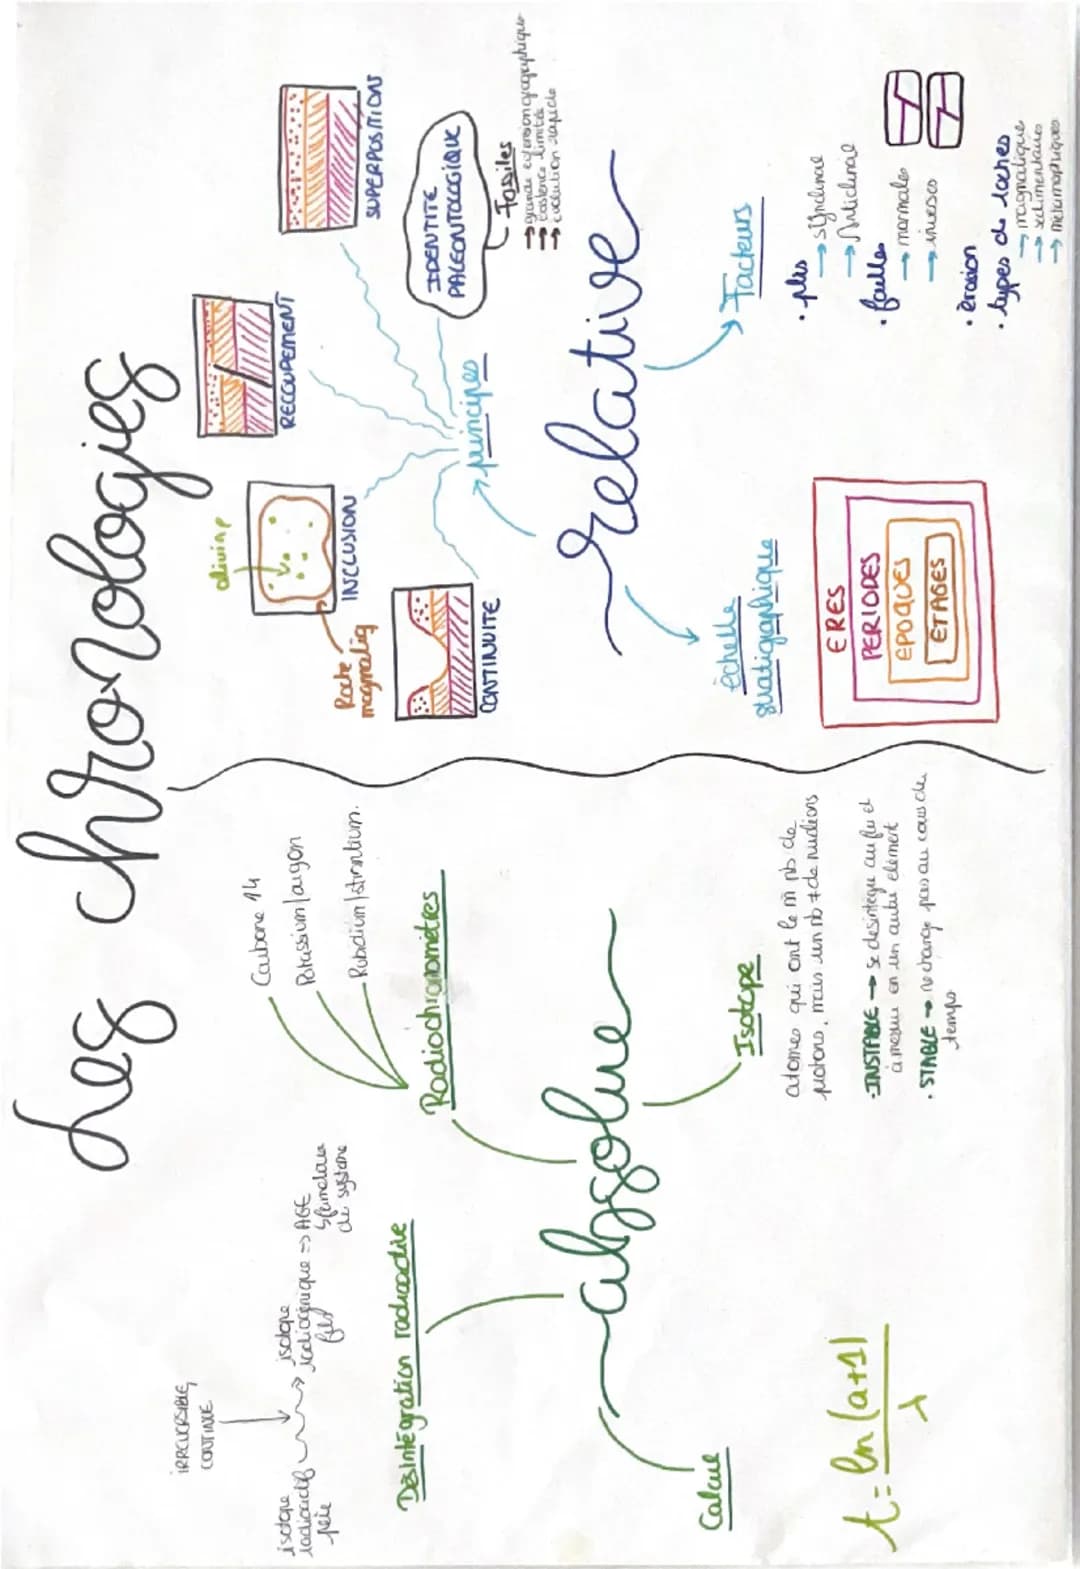 Les chronologies
IRREVERSIBLE,
CONTINUE
isotope
radioactif
père
isotope
radiogénique => AGE
fils
de système
Désintégration radioactive
Carbone 14
Potassium/argon
Rubidium/strontium.
Radiochronomètres
absolue
Calcul
t = ln (a+1)
λ
Isotope
atomes qui ont le m̂ nb de
protons, mais un nb ≠ de nucléons
·INSTABLE → se désintègre au fur et
à mesure en un autre élément
· STABLE → ne change pas au cours du
temps
olivine
Roche
magmatiq
INCLUSION
RECOUPEMENT
SUPERPOSITIONS
CONTINUITE
IDENTITE
PALEONTOLOGIQUE
Fossiles
→ grande extension géographique
→ existence limitée
→ évolution rapide
principes
relative
échelle
stratigraphique
ERES
PERIODES
EPOQUES
ETAGES
Facteurs
· plis
→ synclinal
→ Anticlinal
· faille
→ normale
→ inverse
· érosion
· types de roches
→ magmatique
→ sédimentaires
→ métamorphiques